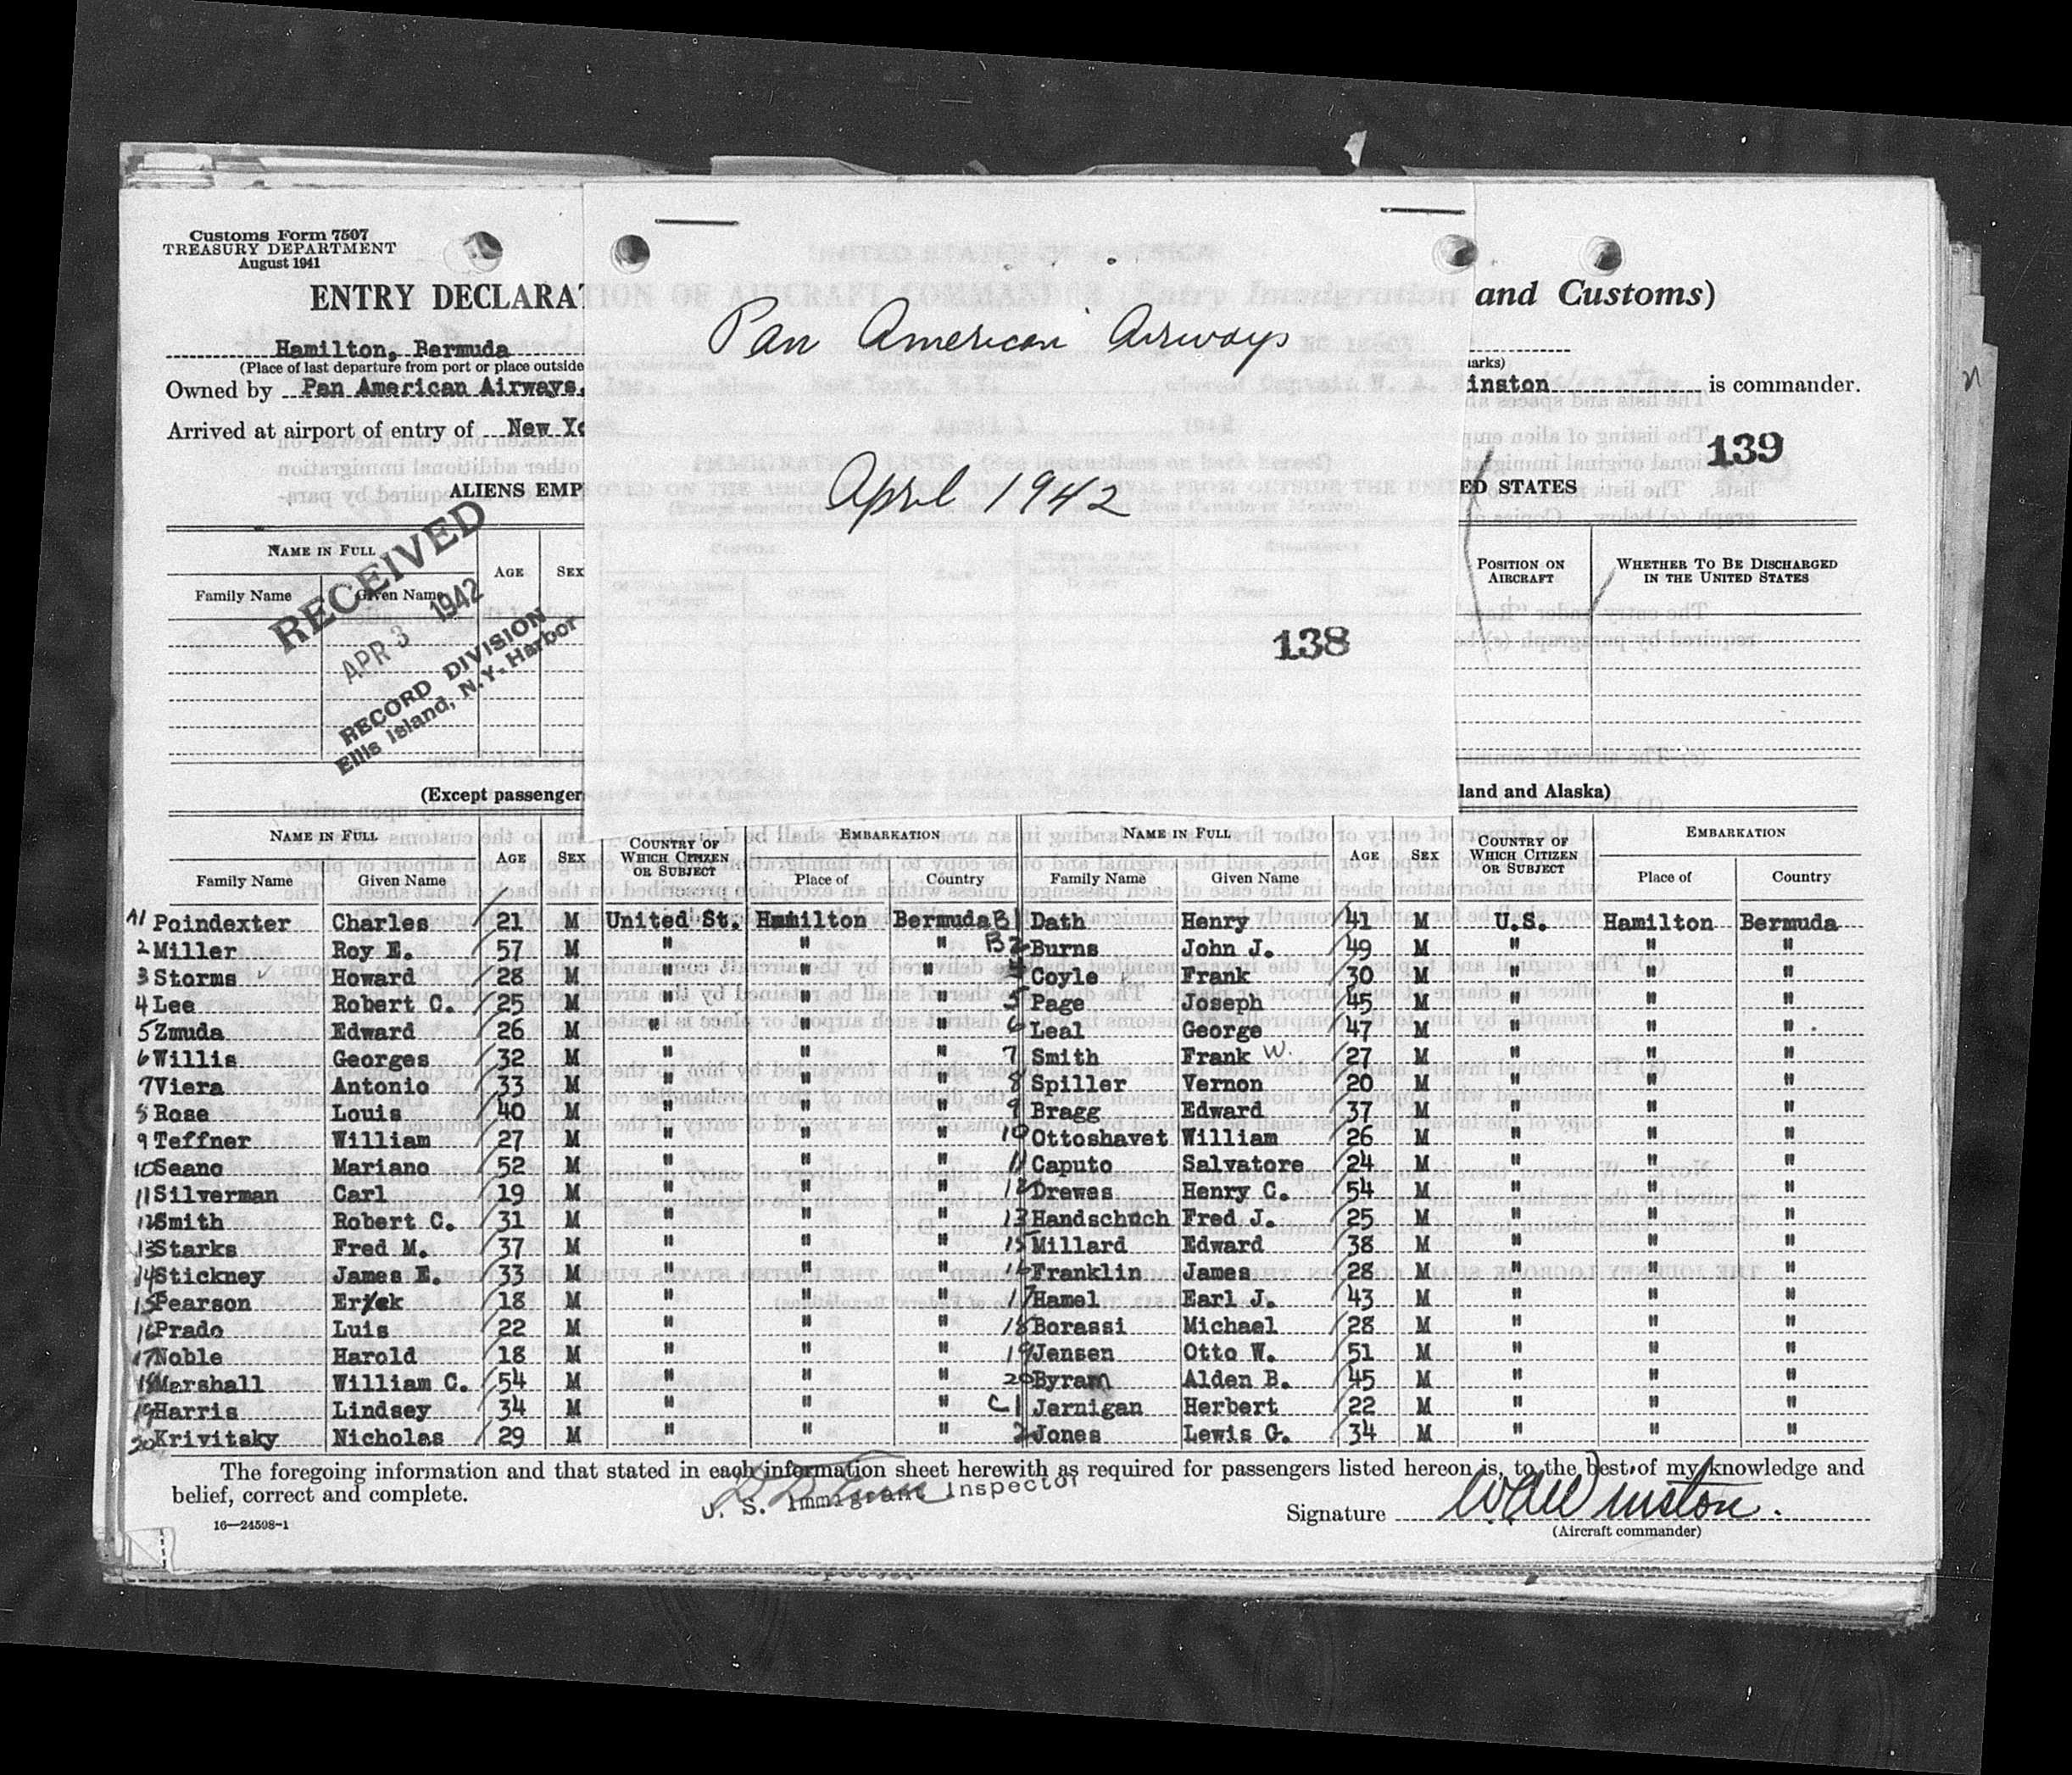 Customs Form 7507
TREASURY DEPARTMENT
August 1941
ENTRY DECLARAT
and Customs)
Pan American Airways
Hamilton, Bermuda
(Place of last departure from port or place outside
arks)
Owned by Pan American Airways,
inston is commander.
Arrived at airport of entry of New Yo
139
April 1942
ALIENS EMP
ED STATES
RECEIVED
APR 3 1942
RECORD DIVISION
Ellis Island, N.Y. Harbor
138
NAME IN FULL AGE SEX
Family Name Given Name
POSITION ON AIRCRAFT WHETHER TO BE DISCHARGED IN THE UNITED STATES
(Except passenger
land and Alaska)
NAME IN FULL AGE SEX COUNTRY OF WHICH CITIZEN OR SUBJECT EMBARKATION NAME IN FULL AGE SEX COUNTRY OF WHICH CITIZEN OR SUBJECT EMBARKATION
Family Name Given Name Place of Country Family Name Given Name Place of Country
A1 Poindexter Charles 21 M United St. Hamilton Bermuda B1 Dath Henry 41 M U.S. Hamilton Bermuda
2 Miller Roy E. 57 M " " " B2 Burns John J. 49 M " " "
3 Storms Howard 28 M " " " Coyle Frank 30 M " " "
4 Lee Robert C. 25 M " " " 5 Page Joseph 45 M " " "
5 Zmuda Edward 26 M " " " 6 Leal George 47 M " " "
6 Willis Georges 32 M " " " 7 Smith Frank W. 27 M " " "
7 Viera Antonio 33 M " " " 8 Spiller Vernon 20 M " " "
8 Rose Louis 40 M " " " 9 Bragg Edward 37 M " " "
9 Teffner William 27 M " " " 10 Ottoshavet William 26 M " " "
10 Seano Mariano 52 M " " " 11 Caputo Salvatore 24 M " " "
11 Silverman Carl 19 M " " " 12 Drewes Henry C. 54 M " " "
12 Smith Robert C. 31 M " " " 13 Handschuch Fred J. 25 M " " "
13 Starks Fred M. 37 M " " " 15 Millard Edward 38 M " " "
14 Stickney James E. 33 M " " " 16 Franklin James 28 M " " "
15 Pearson 18 M " " " 17 Hamel Earl J. 43 M " " "
16 Prado Luis 22 M " " " 18 Borassi Michael 28 M " " "
17 Noble Harold 18 M " " " 19 Jensen Otto W. 51 M " " "
18 Marshall William C. 54 M " " " 20 Byram Alden B. 45 M " " "
19 Harris Lindsey 34 M " " " C1 Jernigan Herbert 22 M " " "
20 Krivitsky Nicholas 29 M " " " 2 Jones Lewis G. 34 M " " "
The foregoing information and that stated in each information sheet herewith as required for passengers listed hereon is, to the best of my knowledge and
belief, correct and complete.
U. S. Immigrant Inspector
Signature W A Winston.
(Aircraft commander)
16—24598-1